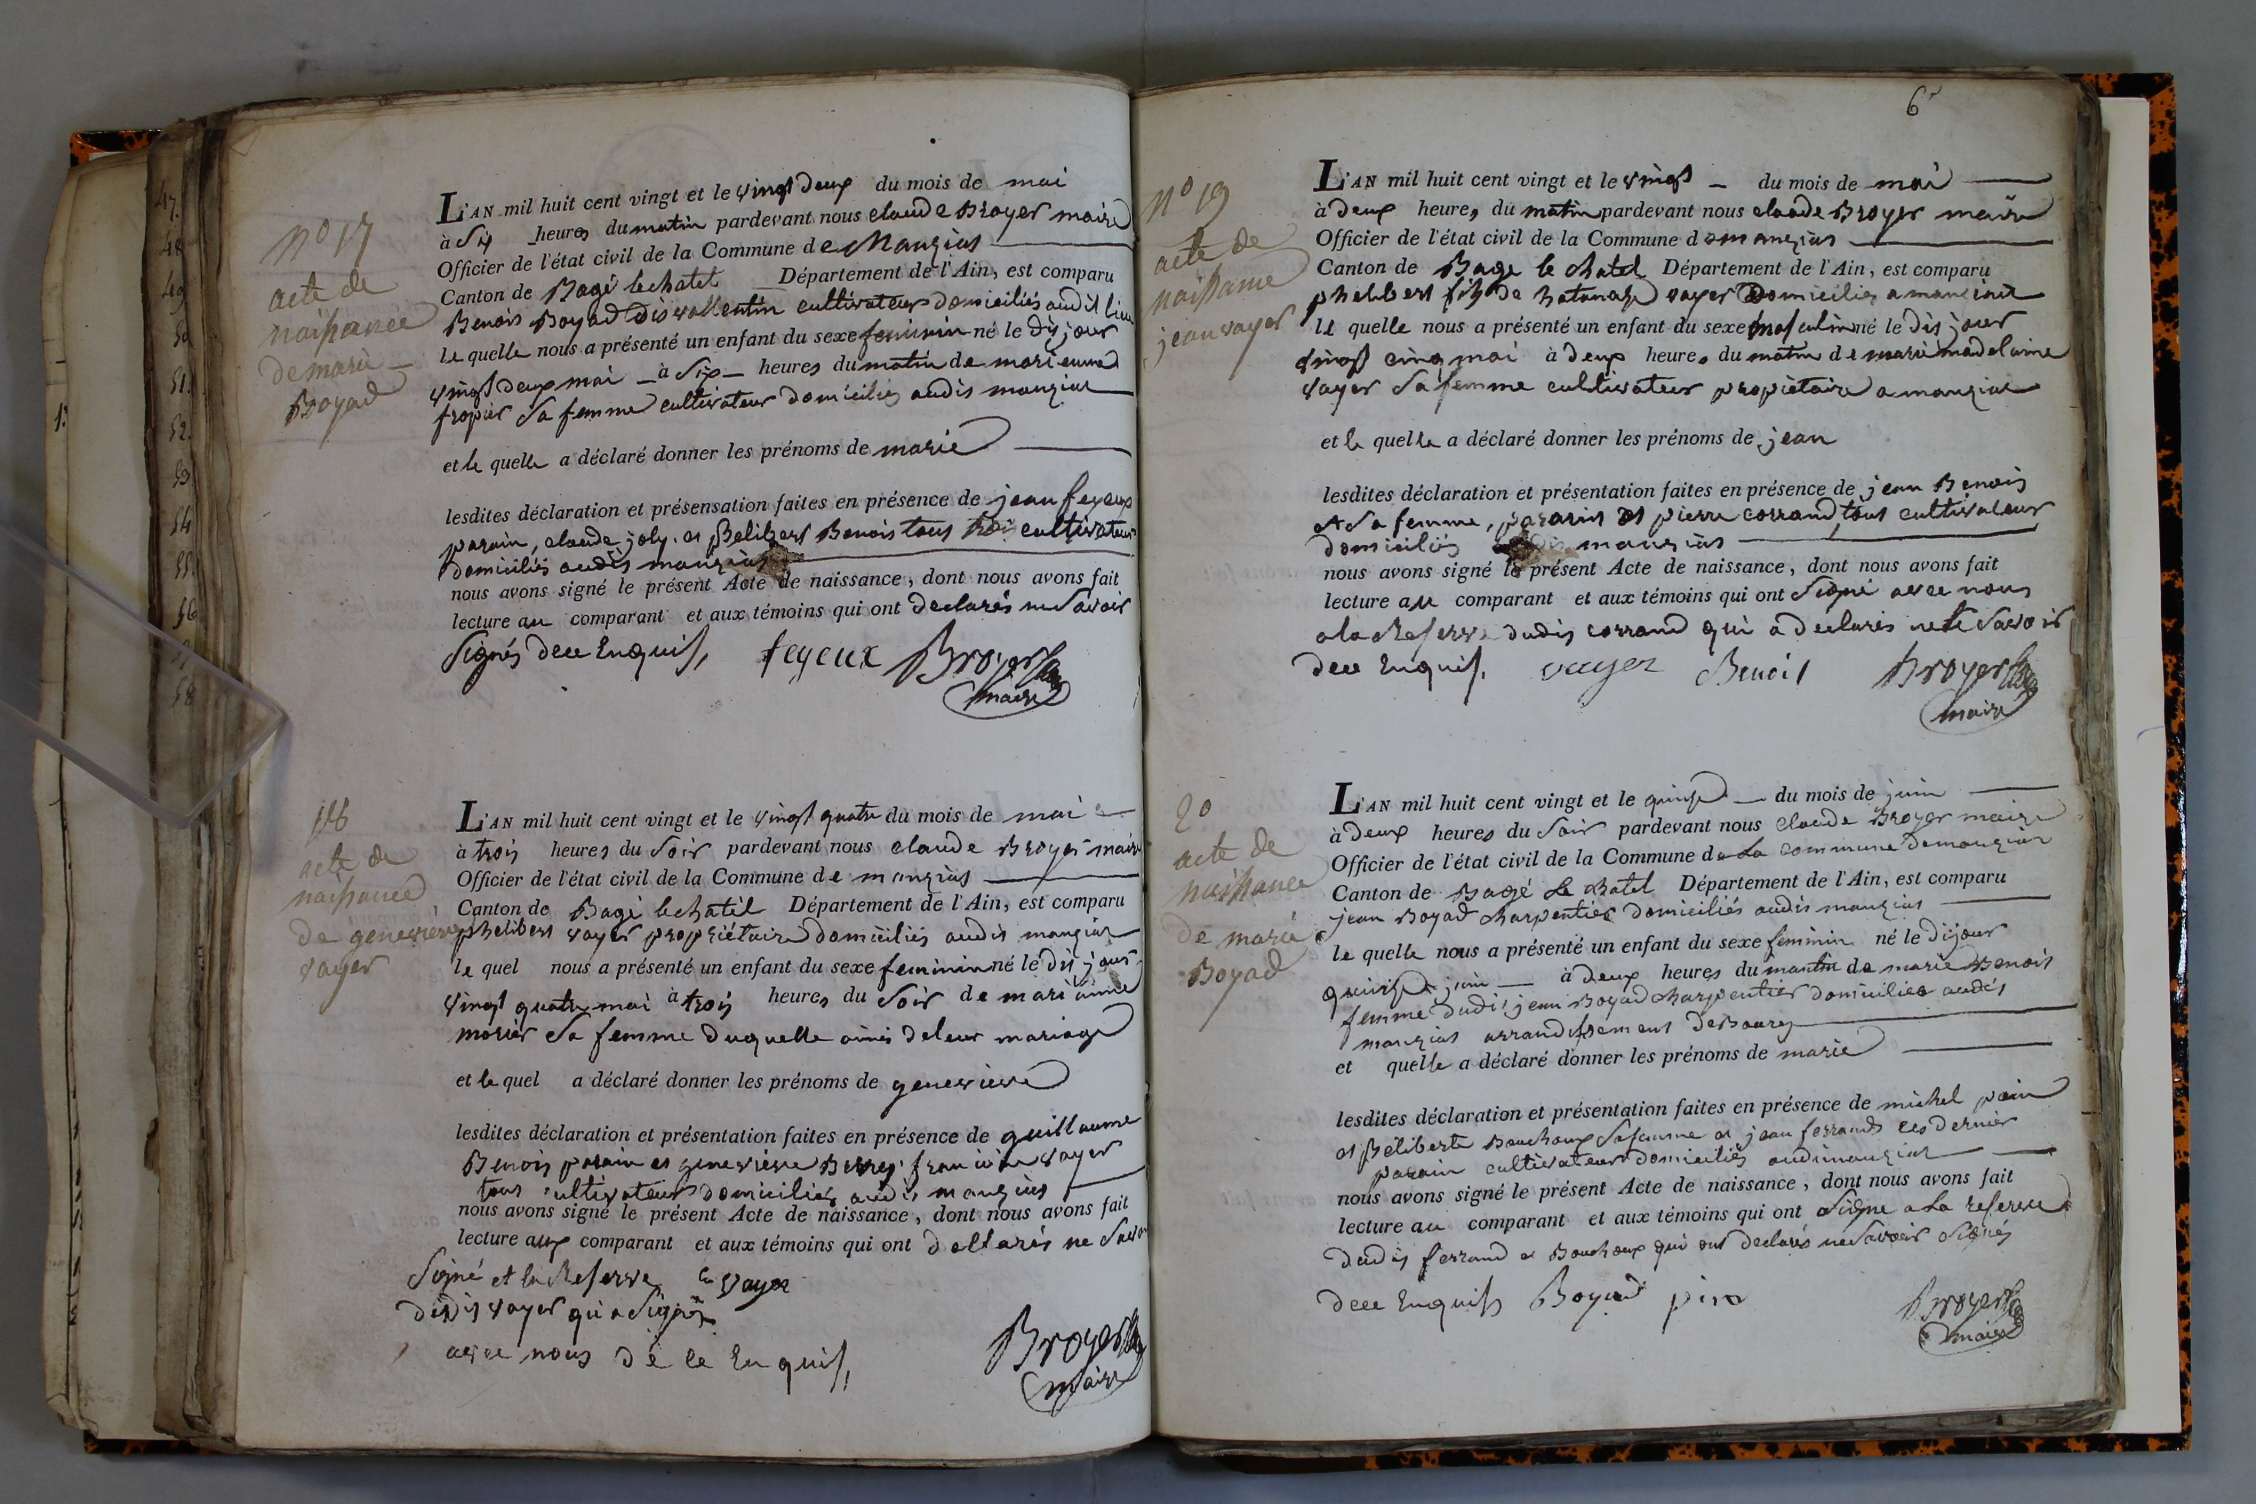 47.
48
49
50
51.
52.
53
54
55.
56
58
nº 17
acte de
naissance
de marie
Boyad
L'AN mil huit cent vingt et le vingt deux du mois de mai
à six heures du matin pardevant nous claude Broyer maire
Officier de l'état civil de la Commune de Manziat
Canton de Bagé lechatel Département de l'Ain, est comparu
Benois Boyad dis vallentin cultivateur domiciliés audit lieu
le quelle nous a présenté un enfant du sexe feminin né le dis jour
vingt deux mai à six heures du matin de marieanne
fropier sa femme cultivateur domiciliés audis manziat
et le quelle a déclaré donner les prénoms de marie
lesdites déclaration et présensation faites en présence de jean feyeux
parain, claude joly. et Belibert Benois tous trois cultivateur
domiciliés audis manziat
nous avons signé le présent Acte de naissance, dont nous avons fait
lecture au comparant et aux témoins qui ont declarés ne savoir
signés dece Enquis, feyeux Broyer
maire
18
acte de
naissance
de genevieve
vayer
L'AN mil huit cent vingt et le vingt quatre du mois de mai
à trois heures du soir pardevant nous claude Broyer maire
Officier de l'état civil de la Commune de manziat
Canton de Bagé lechatel Département de l'Ain, est comparu
phelibert vayer propriétaire domiciliés audis manziat
le quel nous a présenté un enfant du sexe feminin né le dis jour
vingt quatre mai à trois heures du soir de marianne
morier sa femme duquelle ainés deleur mariage
et le quel a déclaré donner les prénoms de genevieve
lesdites déclaration et présentation faites en présence de guillaume
Benois parain et genevieve Berrey. francoise vayer
tous cultivateur domiciliés audis manziat
nous avons signé le présent Acte de naissance, dont nous avons fait
lecture aux comparant et aux témoins qui ont dellarés ne savoir
signé et la Reserve vayer
dudis vayer qui a signés
avec nous dé ce Enquis,
Broyer
maire
6e
nº 19
acte de
naissance
jean vayer
L'AN mil huit cent vingt et le vingt du mois de mai
à deux heures du matin pardevant nous claude Broyer maire
Officier de l'état civil de la Commune de manziat
Canton de Bage le chatel Département de l'Ain, est comparu
phelibert fils de vayer domiciliés a manziat
le quelle nous a présenté un enfant du sexe masculin né le dis jour
vingt cinq mai à deux heures du matin de marie madelaine
vayer sa femme cultivateur propiétaire a manziat
et le quelle a déclaré donner les prénoms de jean
lesdites déclaration et présentation faites en présence de jean Benois
et sa femme, pararin et pierre corrand, tous cultivateur
domiciliés manziat
nous avons signé le présent Acte de naissance, dont nous avons fait
lecture au comparant et aux témoins qui ont signé avec nous
a la Reserve dudis corrand qui a declarés ne le savoir
dece Enquis. vayer Benoit Broyer
maire
20
acte de
naissance
de marie
Boyad
L'AN mil huit cent vingt et le quinse du mois de juin
à deux heures du soir pardevant nous claude Broyer maire
Officier de l'état civil de la Commune de La commune demanziat
Canton de Bagé le chatel Département de l'Ain, est comparu
jean Boyad charpentier domiciliés audis manziat
le quelle nous a présenté un enfant du sexe feminin né le dijour
quinse juin à deux heures du mantin de marie Benois
femme dudis jean Boyad charpentier domiciliés audis
manziat arrandissement deBourg
et quelle a déclaré donner les prénoms de marie
lesdites déclaration et présentation faites en présence de michel pain
et Beliberte Bouchoux safemme et jean ferrand ces dernier
parain cultivateur domiciliés audimanziat
nous avons signé le présent Acte de naissance, dont nous avons fait
lecture au comparant et aux témoins qui ont signe a La reserve
dudis ferrand et Bouchoux qui ont declarés nesavoir signés
dece Enquis Boyad pin
Broyer
maire